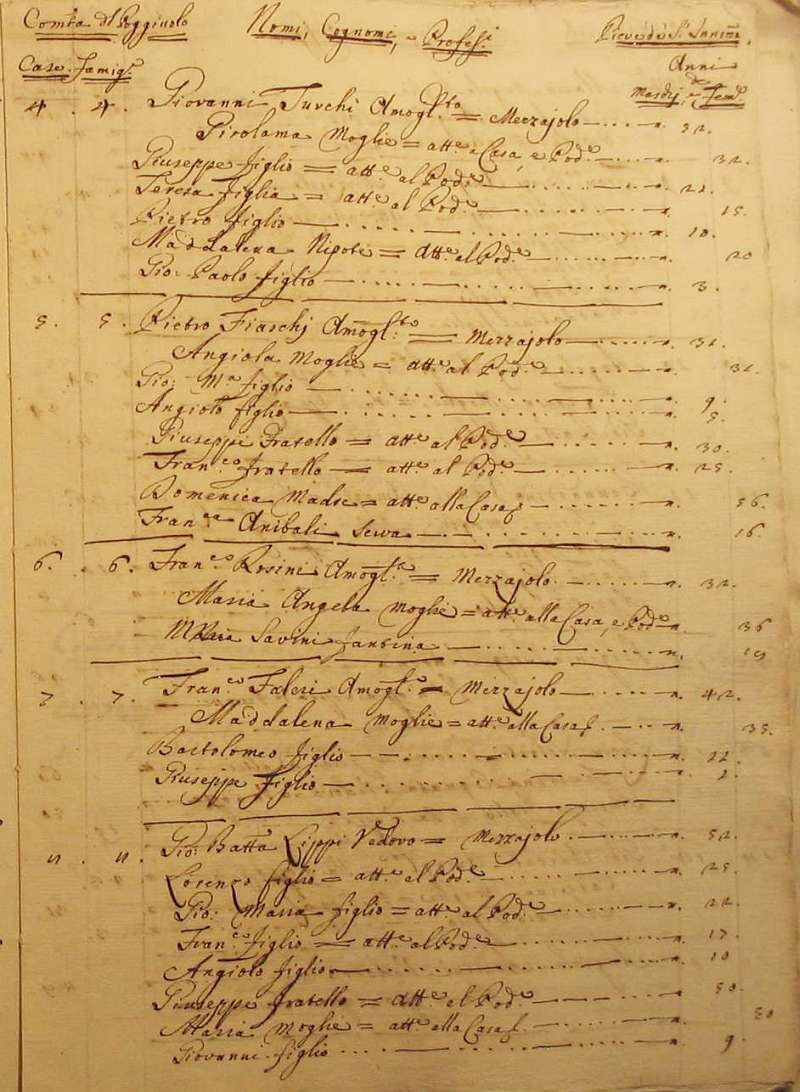 Comtà di Poggiuolo Nomi, Cognomi, e Profess.i Pieve di S.
Case. Famigl.e Anni
Maschj, e Fem.e
4. 4. Giovanni Turchi Amogl.to = Mezzajolo n. 32.
Girolama Moglie = att.e a Casa, e Pod.e 32.
Giuseppe figlio = att.e al Pod.e n. 21.
Teresa figlia = att.e al Pod.e n. 15.
Pietro figlio n. 10.
Maddalena Nipote = att.e al Pod.e 20
Gio: Paolo figlio n. 3.
5. 5. Pietro Fiaschj Amogl.to = Mezzajolo n. 31.
Angiola Moglie = att.e al Pod.e n. 31.
Gio: M.a figlio n. 9.
Angiolo figlio n. 5.
Giuseppe Fratello = att.e al Pod.e n. 30.
Fran.co fratello = att.e al Pod.e n. 25.
Domenica Madre = att.e alla Casa n. 56.
Fran.ca Anibali Serva n. 16.
6. 6. Fran.co Rosini Amogl.to = Mezzajolo n. 32.
Maria Angela Moglie = att.e alla Casa, e Pod.e n. 36
Maria Savini fantina n. 19
7. 7. Fran.co Faleri Amogl.to = Mezzajolo n. 42.
Maddalena Moglie = att.e alla Casa n. 35.
Bartolomeo figlio n. 22.
Giuseppe figlio n. 2.
n. n. Gio: Batta Lippi Vedovo = Mezzajolo n. 52.
Lorenzo figlio = att.e al Pod.e n. 25.
Gio: Maria figlio = att.e al Pod.e n. 22.
Fran.co figlio = att.e al Pod.e n. 17.
Angiolo figlio n. 10
Giuseppe fratello = att.e al Pod.e n. 50.
Maria Moglie = att.e alla Casa n. 50
Giovanni figlio n. 9.